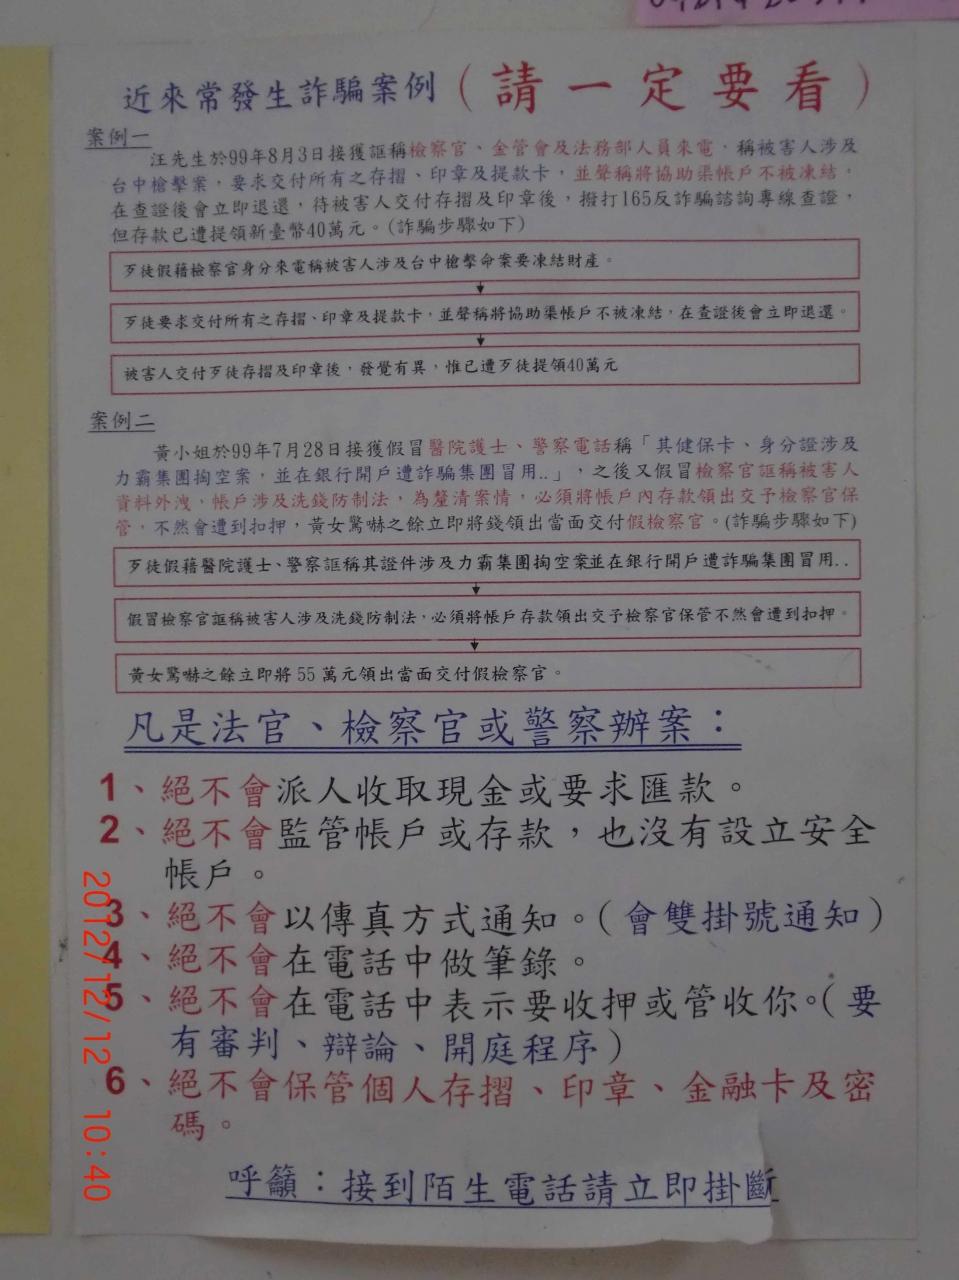 近來常發生詐騙案例（請一定要看）
案例一
汪先生於99年8月3日接獲誆稱檢察官、金管會及法務部人員來電，稱被害人涉及
台中槍擊案，要求交付所有之存摺、印章及提款卡，並聲稱將協助渠帳戶不被凍結，
在查證後會立即退還，待被害人交付存摺及印章後，撥打165反詐騙諮詢專線查證，
但存款已遭提領新臺幣40萬元。(詐騙步驟如下)
歹徒假藉檢察官身分來電稱被害人涉及台中槍擊命案要凍結財產。
歹徒要求交付所有之存摺、印章及提款卡，並聲稱將協助渠帳戶不被凍結，在查證後會立即退還。
被害人交付歹徒存摺及印章後，發覺有異，惟已遭歹徒提領40萬元
案例二
黃小姐於99年7月28日接獲假冒醫院護士、警察電話稱「其健保卡、身分證涉及
力霸集團掏空案，並在銀行開戶遭詐騙集團冒用..」，之後又假冒檢察官誆稱被害人
資料外洩，帳戶涉及洗錢防制法，為釐清案情，必須將帳戶內存款領出交予檢察官保
管，不然會遭到扣押，黃女驚嚇之餘立即將錢領出當面交付假檢察官。(詐騙步驟如下)
歹徒假藉醫院護士、警察誆稱其證件涉及力霸集團掏空案並在銀行開戶遭詐騙集團冒用..
假冒檢察官誆稱被害人涉及洗錢防制法，必須將帳戶存款領出交予檢察官保管不然會遭到扣押。
黃女驚嚇之餘立即將 55 萬元領出當面交付假檢察官。
凡是法官、檢察官或警察辦案：
1、絕不會派人收取現金或要求匯款。
2、絕不會監管帳戶或存款，也沒有設立安全
帳戶。
3、絕不會以傳真方式通知。（會雙掛號通知）
4、絕不會在電話中做筆錄。
5、絕不會在電話中表示要收押或管收你。（要
有審判、辯論、開庭程序）
6、絕不會保管個人存摺、印章、金融卡及密
碼。
呼籲：接到陌生電話請立即掛斷
2012/12/12 10:40